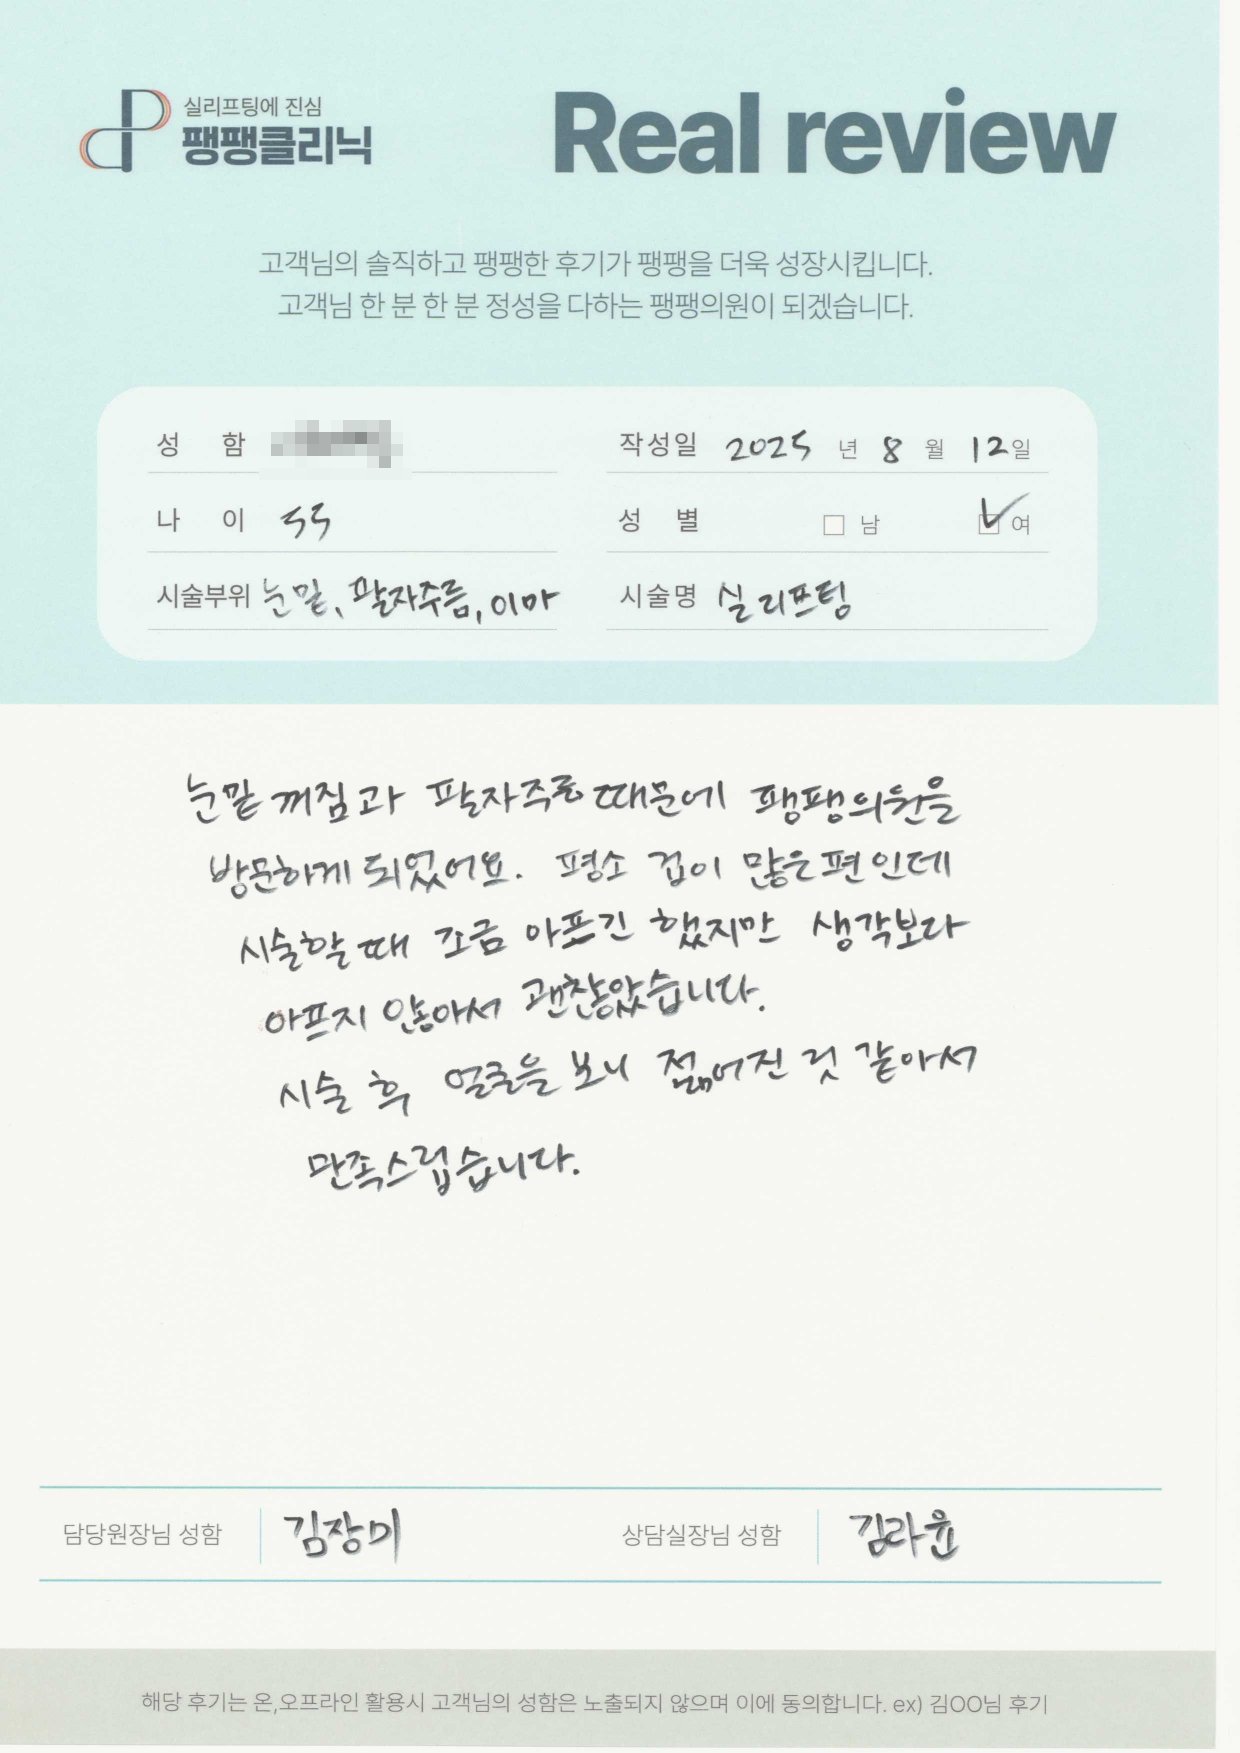 실리프팅에 진심
팽팽클리닉
Real review
고객님의 솔직하고 팽팽한 후기가 팽팽을 더욱 성장시킵니다.
고객님 한 분 한 분 정성을 다하는 팽팽의원이 되겠습니다.
성 함
작성일 2025 년 8 월 12 일
나 이 55
성 별 □ 남 ☑ 여
시술부위 눈밑, 팔자주름, 이마
시술명 실리프팅
눈밑 꺼짐과 팔자주름 때문에 팽팽의원을
방문하게 되었어요. 평소 겁이 많은 편인데
시술할 때 조금 아프긴 했지만 생각보다
아프지 않아서 괜찮았습니다.
시술 후 얼굴을 보니 젊어진 것 같아서
만족스럽습니다.
담당원장님 성함 김장미
상담실장님 성함 김라윤
해당 후기는 온,오프라인 활용시 고객님의 성함은 노출되지 않으며 이에 동의합니다. ex) 김OO님 후기